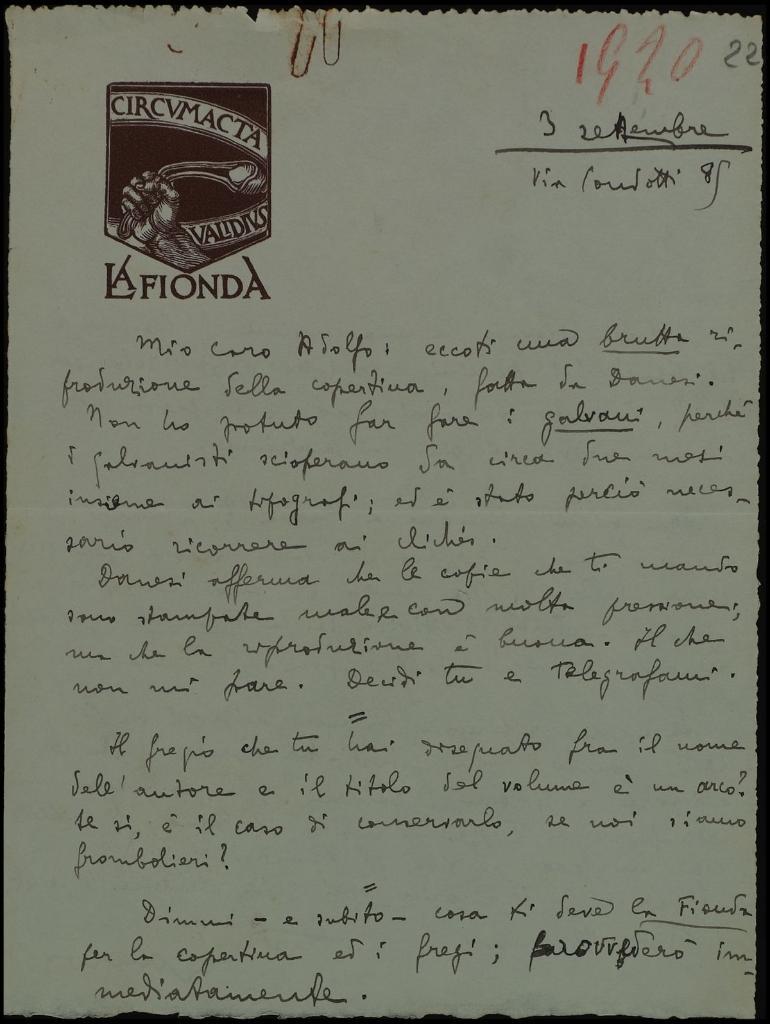 1920 22
3 settembre
Via Condotti 85
CIRCVMACTA
VALIDIVS
LA FIONDA
Mio caro Adolfo: eccoti una brutta ri-
produzione della copertina, fatta da Danesi.
Non ho potuto far fare i galvani, perché
i galvanisti scioperano da circa due mesi
insieme ai tipografi; ed è stato perciò neces-
sario ricorrere ai clichés.
Danesi afferma che le copie che ti mando
sono stampate male e con molta pressione;
ma che la riproduzione è buona. Il che
non mi pare. Decidi tu e telegrafami.
=
Il fregio che tu hai disegnato fra il nome
dell'autore e il titolo del volume è un arco?
Se sì, è il caso di conservarlo, se noi siamo
frombolieri?
=
Dimmi - e subito - cosa ti deve la Fionda
per la copertina ed i fregi; provvederò im-
mediatamente.